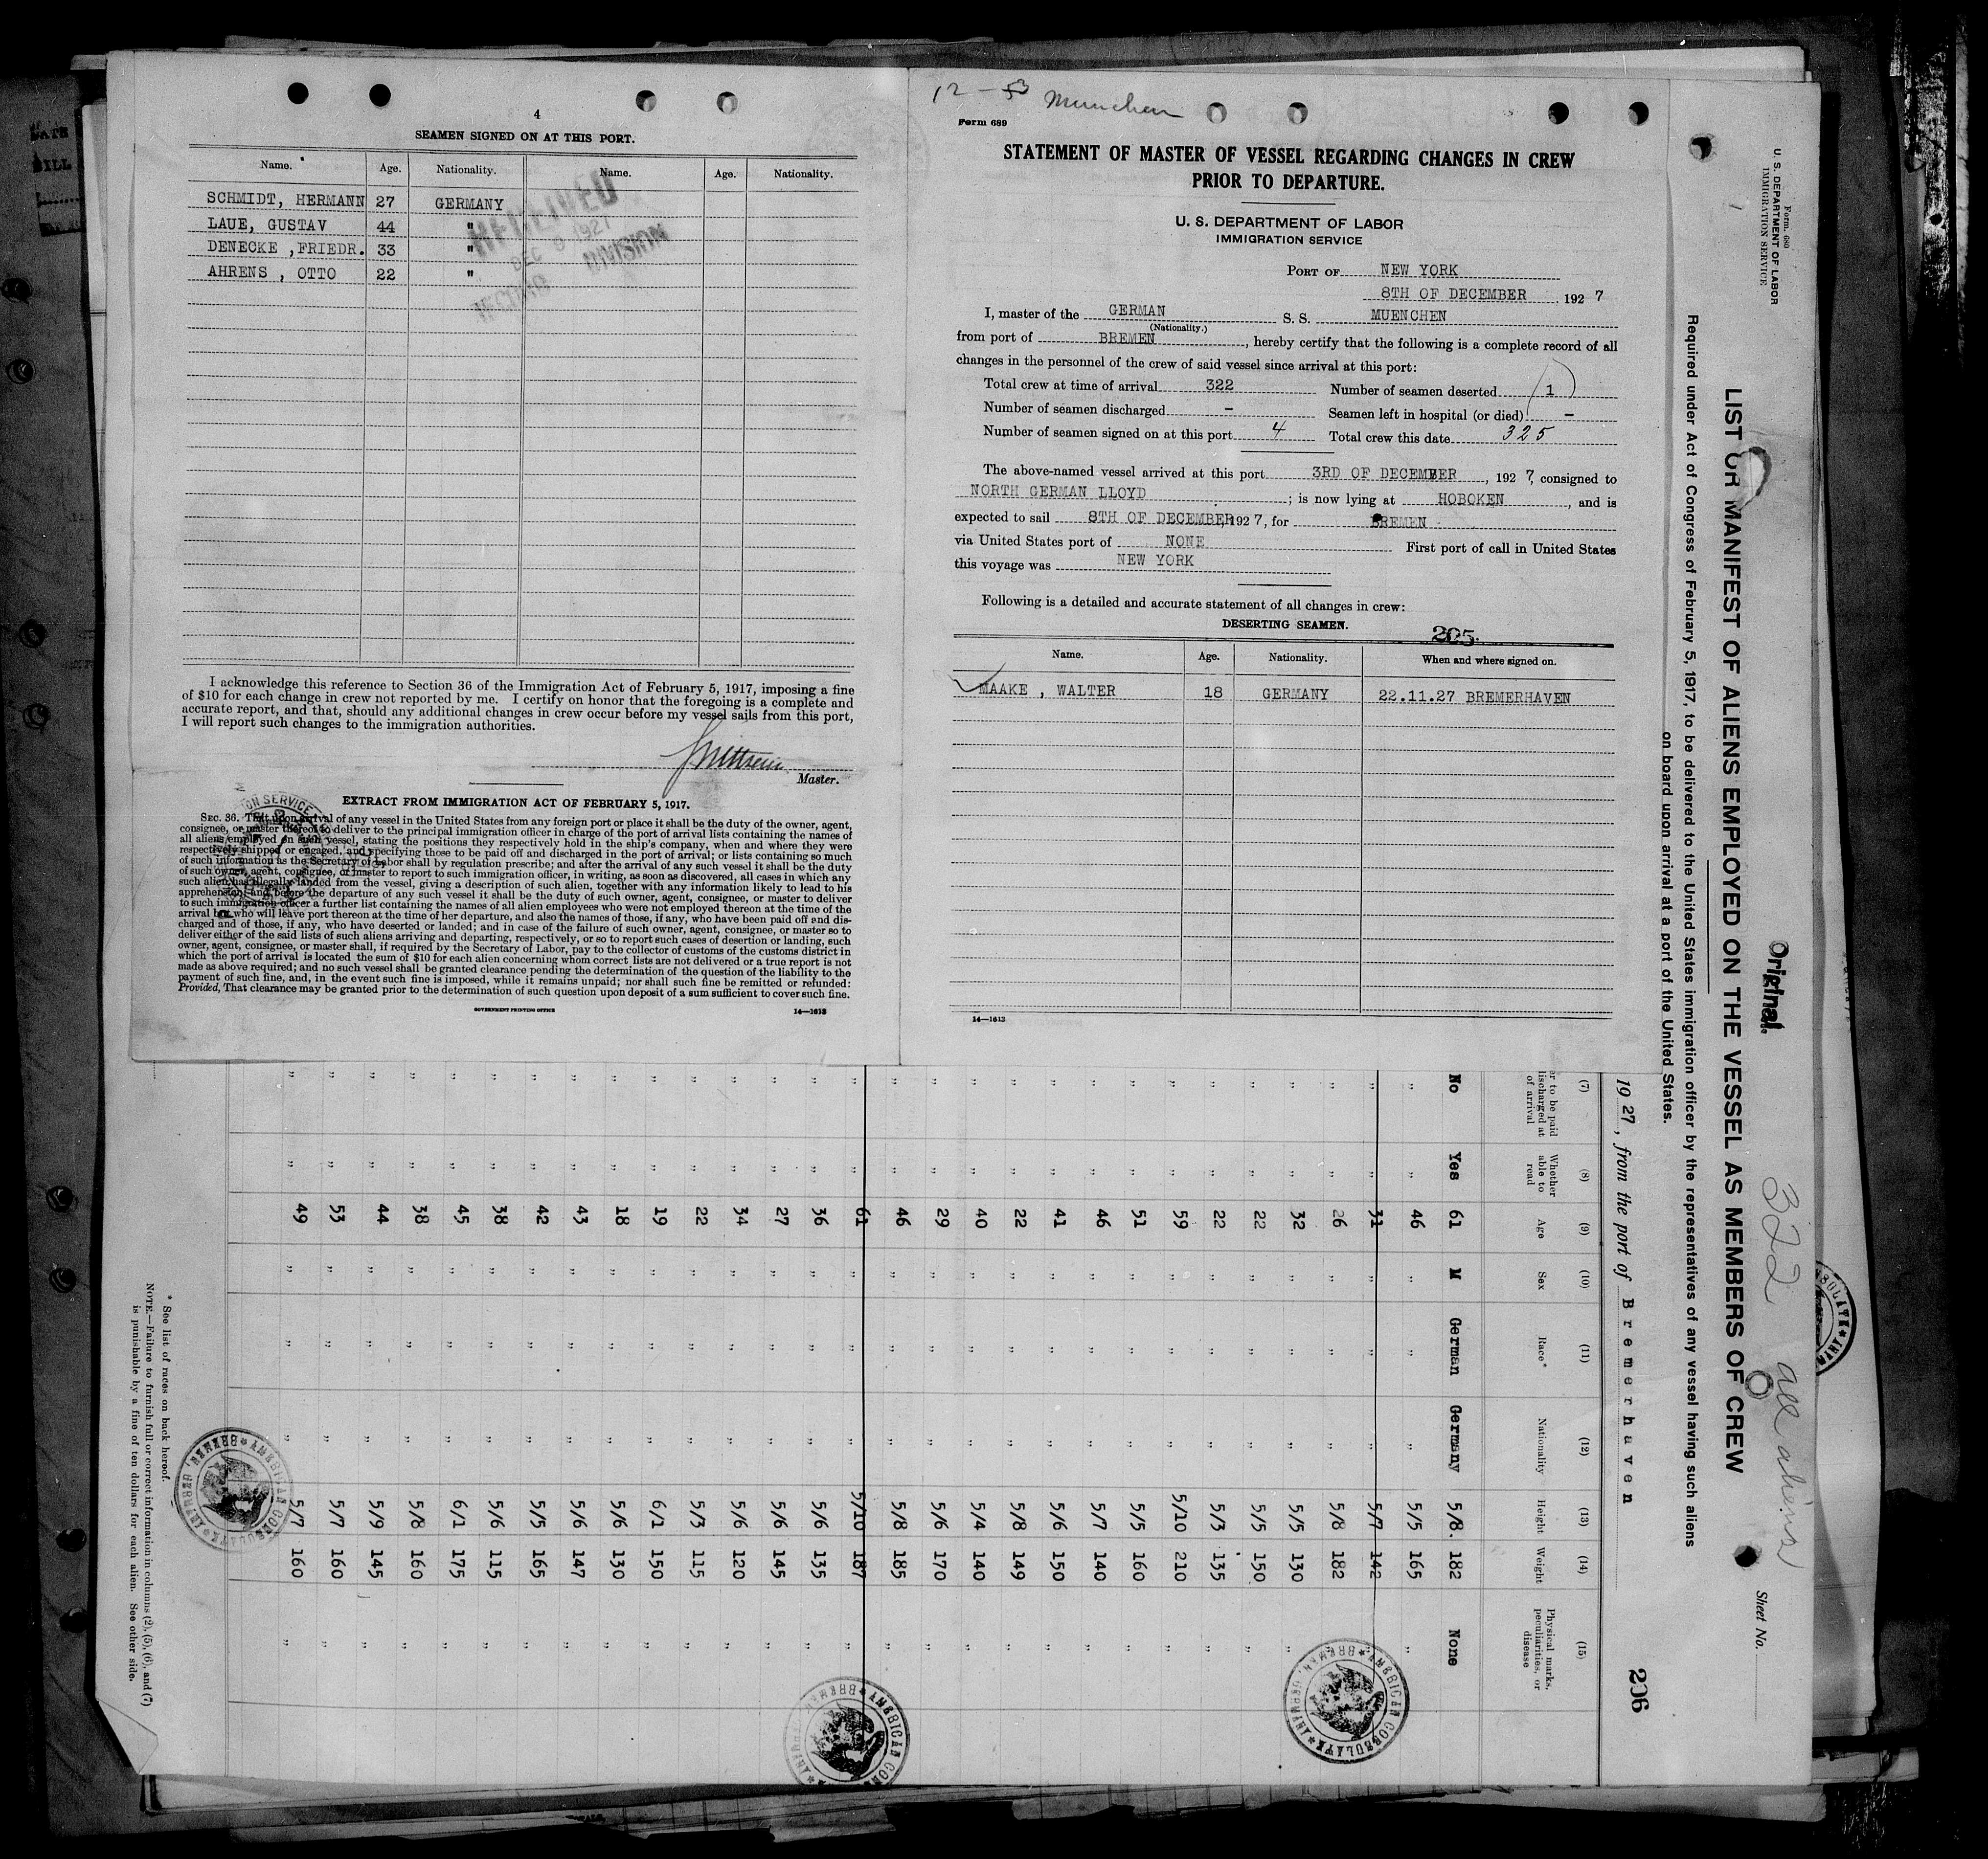 4
SEAMEN SIGNED ON AT THIS PORT.
Name. Age. Nationality. Name. Age. Nationality.
SCHMIDT, HERMANN 27 GERMANY
LAUE, GUSTAV 44 "
DENECKE ,FRIEDR. 33 "
AHRENS , OTTO 22 "
RECEIVED
DEC 8 1927
DIVISION
I acknowledge this reference to Section 36 of the Immigration Act of February 5, 1917, imposing a fine
of $10 for each change in crew not reported by me. I certify on honor that the foregoing is a complete and
accurate report, and that, should any additional changes in crew occur before my vessel sails from this port,
I will report such changes to the immigration authorities.
Master.
EXTRACT FROM IMMIGRATION ACT OF FEBRUARY 5, 1917.
SEC. 36. That upon arrival of any vessel in the United States from any foreign port or place it shall be the duty of the owner, agent,
consignee, or master thereof to deliver to the principal immigration officer in charge of the port of arrival lists containing the names of
all aliens employed on such vessel, stating the positions they respectively hold in the ship's company, when and where they were
respectively shipped or engaged, and specifying those to be paid off and discharged in the port of arrival; or lists containing so much
of such information as the Secretary of Labor shall by regulation prescribe; and after the arrival of any such vessel it shall be the duty
of such owner, agent, consignee, or master to report to such immigration officer, in writing, as soon as discovered, all cases in which any
such alien has illegally landed from the vessel, giving a description of such alien, together with any information likely to lead to his
apprehension; and before the departure of any such vessel it shall be the duty of such owner, agent, consignee, or master to deliver
to such immigration officer a further list containing the names of all alien employees who were not employed thereon at the time of the
arrival but who will leave port thereon at the time of her departure, and also the names of those, if any, who have been paid off and dis-
charged and of those, if any, who have deserted or landed; and in case of the failure of such owner, agent, consignee, or master so to
deliver either of the said lists of such aliens arriving and departing, respectively, or so to report such cases of desertion or landing, such
owner, agent, consignee, or master shall, if required by the Secretary of Labor, pay to the collector of customs of the customs district in
which the port of arrival is located the sum of $10 for each alien concerning whom correct lists are not delivered or a true report is not
made as above required; and no such vessel shall be granted clearance pending the determination of the question of the liability to the
payment of such fine, and, in the event such fine is imposed, while it remains unpaid; nor shall such fine be remitted or refunded:
Provided, That clearance may be granted prior to the determination of such question upon deposit of a sum sufficient to cover such fine.
GOVERNMENT PRINTING OFFICE 14—1613
Munchen
Form 689
STATEMENT OF MASTER OF VESSEL REGARDING CHANGES IN CREW
PRIOR TO DEPARTURE.
U. S. DEPARTMENT OF LABOR
IMMIGRATION SERVICE
PORT OF NEW YORK
8TH OF DECEMBER , 192 7
I, master of the GERMAN S. S. MUENCHEN
(Nationality.)
from port of BREMEN , hereby certify that the following is a complete record of all
changes in the personnel of the crew of said vessel since arrival at this port:
Total crew at time of arrival 322 Number of seamen deserted 1
Number of seamen discharged - Seamen left in hospital (or died) -
Number of seamen signed on at this port 4 Total crew this date 325
The above-named vessel arrived at this port 3RD OF DECEMBER , 192 7, consigned to
NORTH GERMAN LLOYD ; is now lying at HOBOKEN , and is
expected to sail 8TH OF DECEMBER, 192 7, for BREMEN
via United States port of NONE First port of call in United States
this voyage was NEW YORK
Following is a detailed and accurate statement of all changes in crew:
DESERTING SEAMEN. 205
Name. Age. Nationality. When and where signed on.
MAAKE , WALTER 18 GERMANY 22.11.27 BREMERHAVEN
14—1613
Form 680
U. S. DEPARTMENT OF LABOR
IMMIGRATION SERVICE
Original.
322 all aliens
Sheet No.
LIST OR MANIFEST OF ALIENS EMPLOYED ON THE VESSEL AS MEMBERS OF CREW
Required under Act of Congress of February 5, 1917, to be delivered to the United States immigration officer by the representatives of any vessel having such aliens
on board upon arrival at a port of the United States.
1927, from the port of Bremerhaven
206
(7) (8) (9) (10) (11) (12) (13) (14) (15)
er to be paid discharged at of arrival Whether able to read Age Sex Race* Nationality Height Weight Physical marks, peculiarities, or disease
No Yes 61 M German Germany 5/8. 182 None
" " 46 " " " 5/5 165 "
" " 31 " " " 5/7 142 "
" " 26 " " " 5/8 182 "
" " 32 " " " 5/5 130 "
" " 22 " " " 5/5 150 "
" " 22 " " " 5/3 135 "
" " 59 " " " 5/10 210 "
" " 51 " " " 5/5 160 "
" " 46 " " " 5/7 140 "
" " 41 " " " 5/6 150 "
" " 22 " " " 5/8 149 "
" " 40 " " " 5/4 140 "
" " 29 " " " 5/6 170 "
" " 46 " " " 5/8 185 "
" " 61 " " " 5/10 187 "
" " 36 " " " 5/6 135 "
" " 27 " " " 5/6 145 "
" " 34 " " " 5/6 120 "
" " 22 " " " 5/3 115 "
" " 19 " " " 6/1 150 "
" " 18 " " " 5/6 130 "
" " 43 " " " 5/6 147 "
" " 42 " " " 5/5 165 "
" " 38 " " " 5/6 115 "
" " 45 " " " 6/1 175 "
" " 38 " " " 5/8 160 "
" " 44 " " " 5/9 145 "
" " 53 " " " 5/7 160 "
" " 49 " " " 5/7 160 "
* See list of races on back hereof.
NOTE.—Failure to furnish full or correct information in columns (2), (5), (6), and (7)
is punishable by a fine of ten dollars for each alien. See other side.
AMERICAN CONSULATE
BREMEN, GERMANY